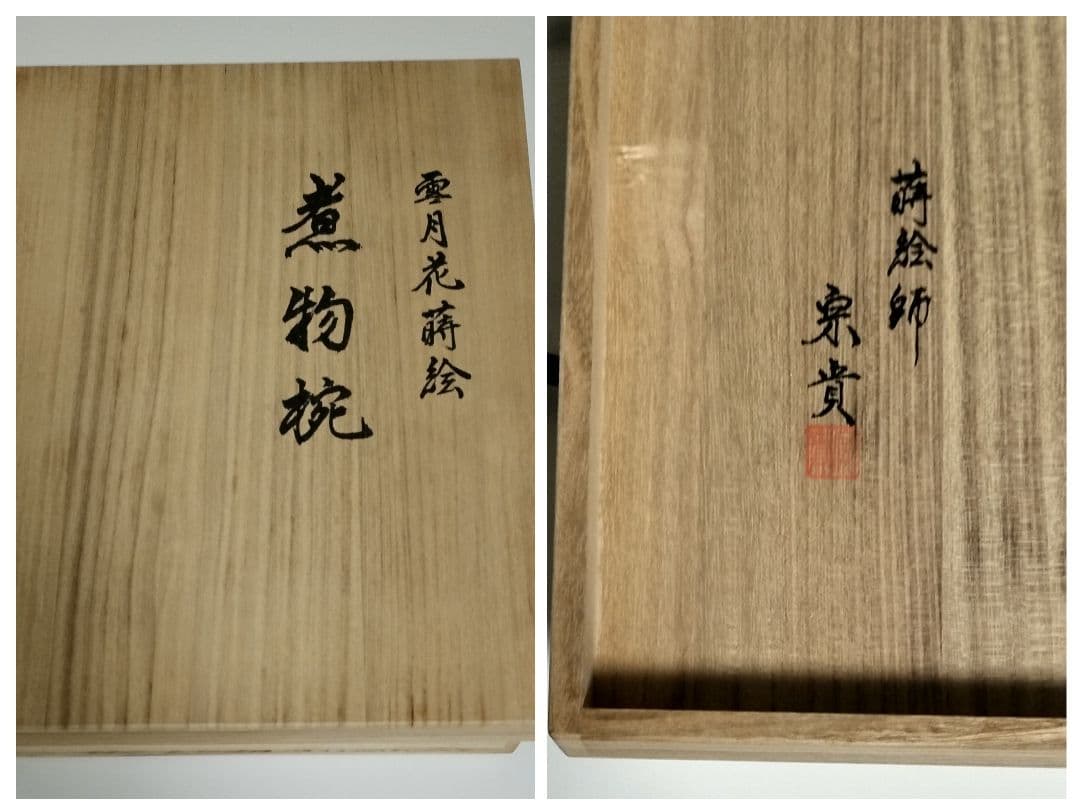 雪月花蒔絵
煮物椀
蒔絵師
宗貴